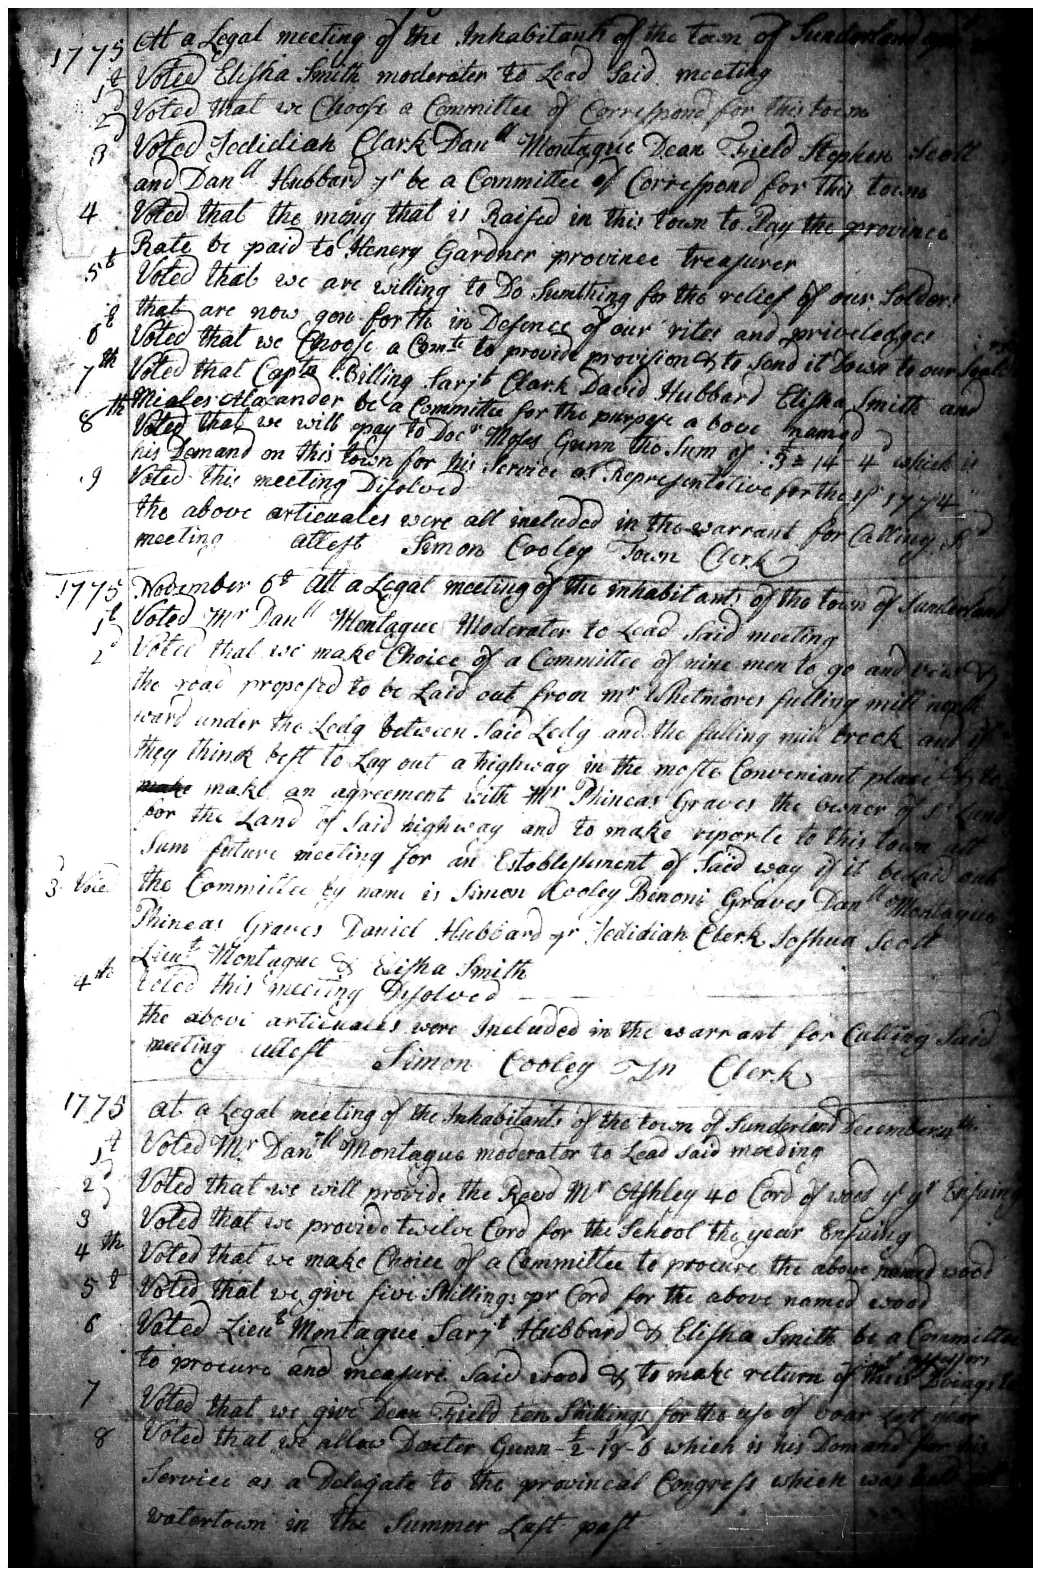 1775 Att a Legal meeting of the Inhabitants of the town of Sunderland
1t Voted Elisha Smith moderater to Lead Said meeting
2d Voted that we Choose a Committee of Correspond for this town
3 Voted Jedidiah Clark Danll Montague Dean Field Stephen Scott
and Danll Hubbard Jr be a Committee of Correspond for this town
4 Voted that the mony that is Raised in this town to Pay the province
Rate be paid to Henery Gardner province treasurer
5t Voted that we are willing to Do Sumthing for the relief of our Solders
that are now gon forth in Defence of our rites and priviledges
6t Voted that we Choose a Comte to provide provision & to Send it Down to our
7th Voted that Capta Billing Sarjt Clark David Hubbard Elisha Smith and
Miales Alaxander be a Committee for the purpose a bove named
8th Voted that we will pay to Docr Moses Gunn the Sum of : 5 = 14 - 4d which is
his Demand on this town for his Service as Representetive for the yr 1774
9 Voted this meeting Disolved
the above articuales were all included in the warrant for Calling Sd
meeting attest Simon Cooley Town Clerk
1775 November 6t Att a Legal meeting of the inhabitants of the town of Sunderland
1t Voted Mr Danll Montague Moderater to Lead Said meeting
2d Voted that we make Choice of a Committee of nine men to go and view
the road proposed to be Laid out from mr Whitmores fulling mill north
ward under the Ledg between Said Ledg and the fulling mill brook and if
they think best to Lay out a highway in the moste Conveniant place & to
make make an agreement with Mr Phineas Graves the owner of sd Land
for the Land of Said highway and to make riporte to this town att
Sum future meeting for an Establishment of Said way if it be Laid out
3 Voted the Committee by name is Simon Cooley Benoni Graves Danll Montague
Phineas Graves Daniel Hubbard Jr Jedidiah Clerk Joshua Scott
Lieut Montague & Elisha Smith
4th Voted this meeting Disolved
the above articuales were Included in the warrant for Calling Said
meeting attest Simon Cooley Tn Clerk
1775 at a Legal meeting of the Inhabitants of the town of Sunderland December 4th
1t Voted Mr Danll Montague moderator to Lead Said meeting
2d Voted that we will provide the Revd Mr Ashley 40 Cord of wood ye yr Ensuing
3 Voted that we provide twelve Cord for the School the year Ensuing
4th Voted that we make Choice of a Committee to procure the above named wood
5t Voted that we give five Shillings pr Cord for the above named wood
6 Voted Lieut Montague Sarjt Hubbard & Elisha Smith be a Committee
to procure and measure Said wood & to make return of their Doings to
assessors
7 Voted that we give Dean Field ten Shillings for the use of boar Last year
8 Voted that we allow Docter Gunn £2-18-6 which is his Demand for his
Service as a Delegate to the provincal Congress which was held
watertown in the Summer Last past